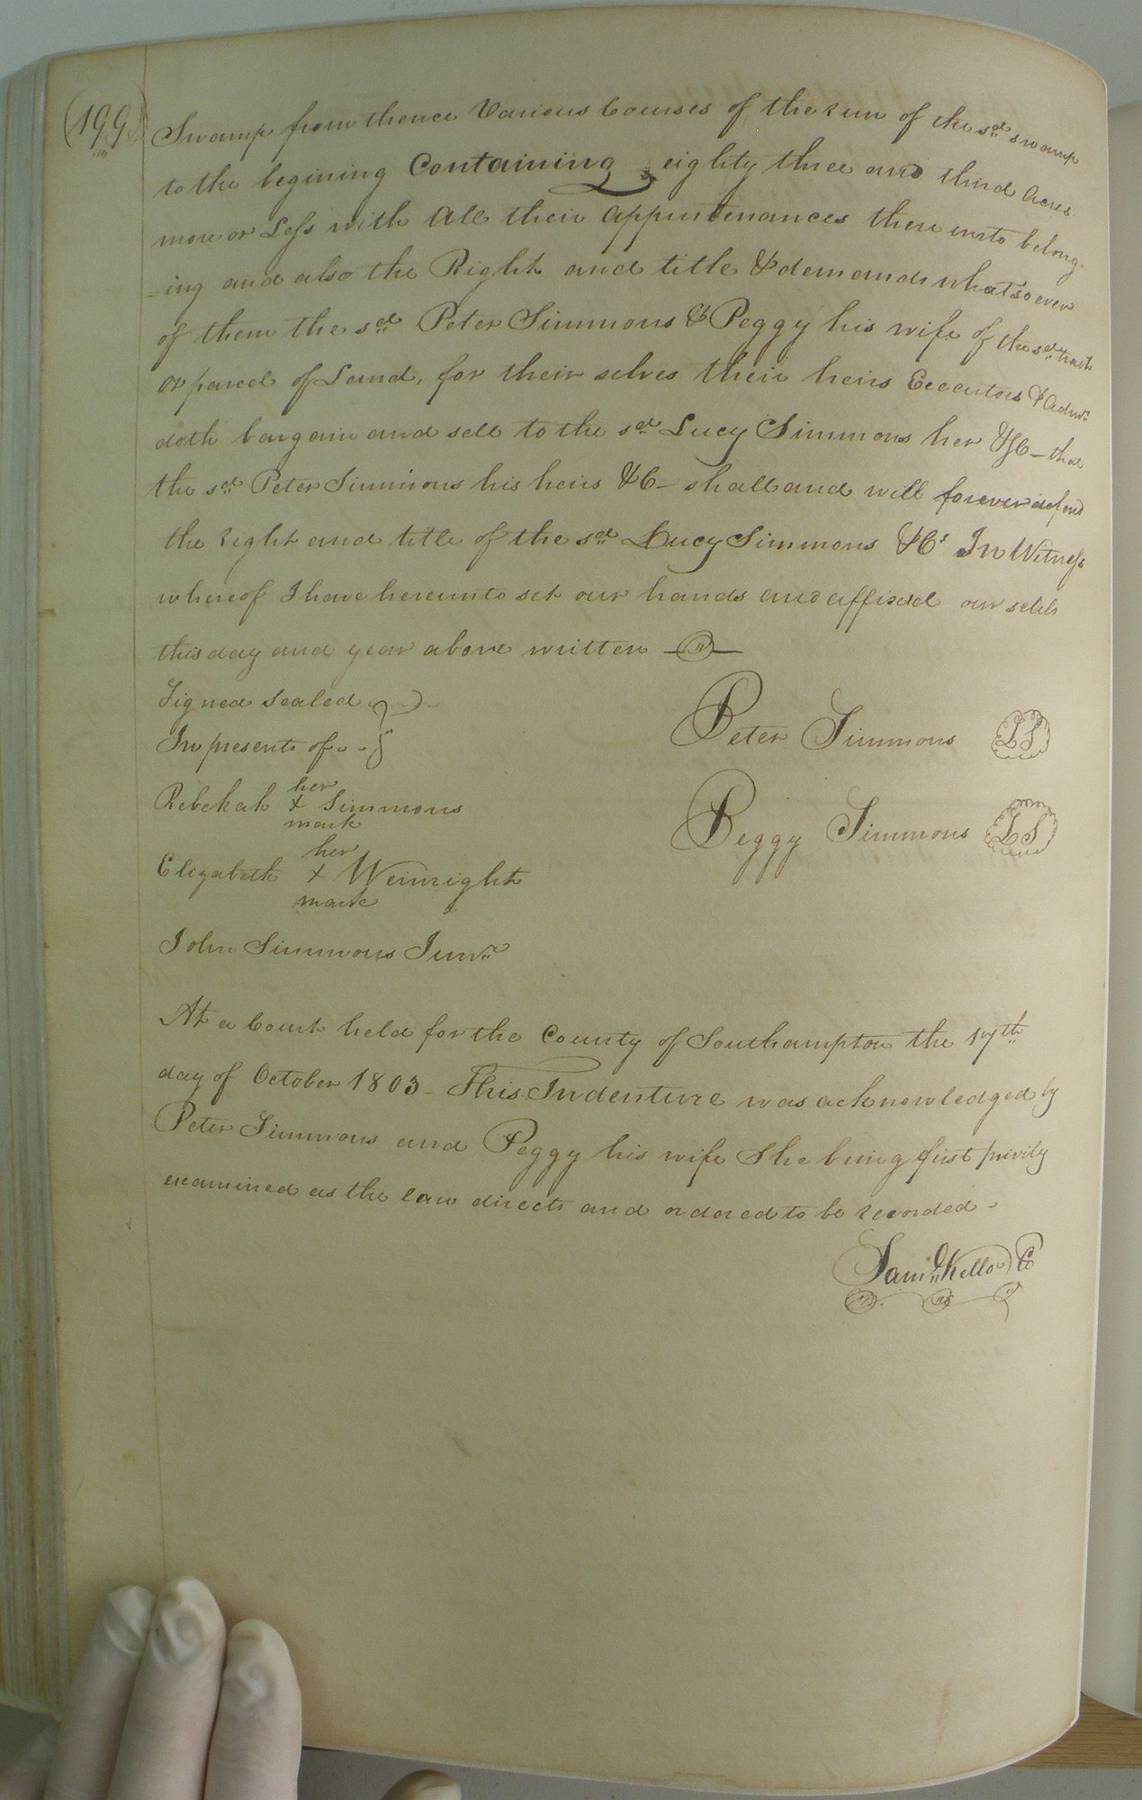 (199)
Swamp from thence Various Courses of the run of the sd swamp
to the begining Containing eighty three and third Acres
more or Less with All their appurtenances there unto belong-
-ing and also the Right and title & demands whatsoever
of them the sd Peter Simmons & Peggy his wife of the sd tract
or parcel of Land, for their selves their heirs Executors & Admrs
doth bargain and sell to the sd Lucy Simmons her &C - that
the sd Peter Simmons his heirs &C - shall and will forever defend
the right and title of the sd Lucy Simmons &Cs In Witness
whereof I have hereunto set our hands and affixed our seals
this day and year above written
Signed Sealed
In presents of
Peter Simmons LS
Rebekah her + mark Simmons
Peggy Simmons LS
Elizabeth her + mark
John Simmons Junr
At a Court held for the County of Southampton the 17th
day of October 1803 - This Indenture was acknowledged by
Peter Simmons and Peggy his wife She being first privily
examined as the law directs and ordered to be recorded -
Saml Kello C